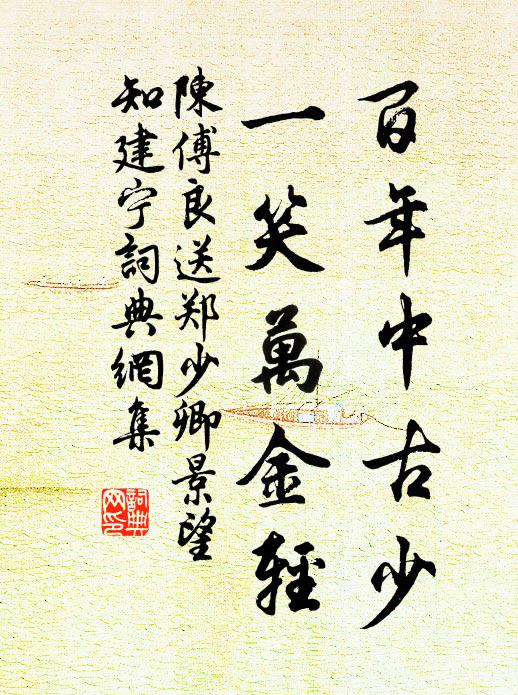 百年中古少
一笑萬金輕
陳傅良送郑少卿景望
知建宁詞典網集
詞典网印